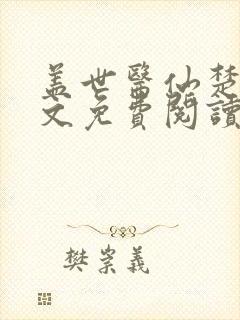 蓋世醫仙楚
文免費閱讀
樊崇義